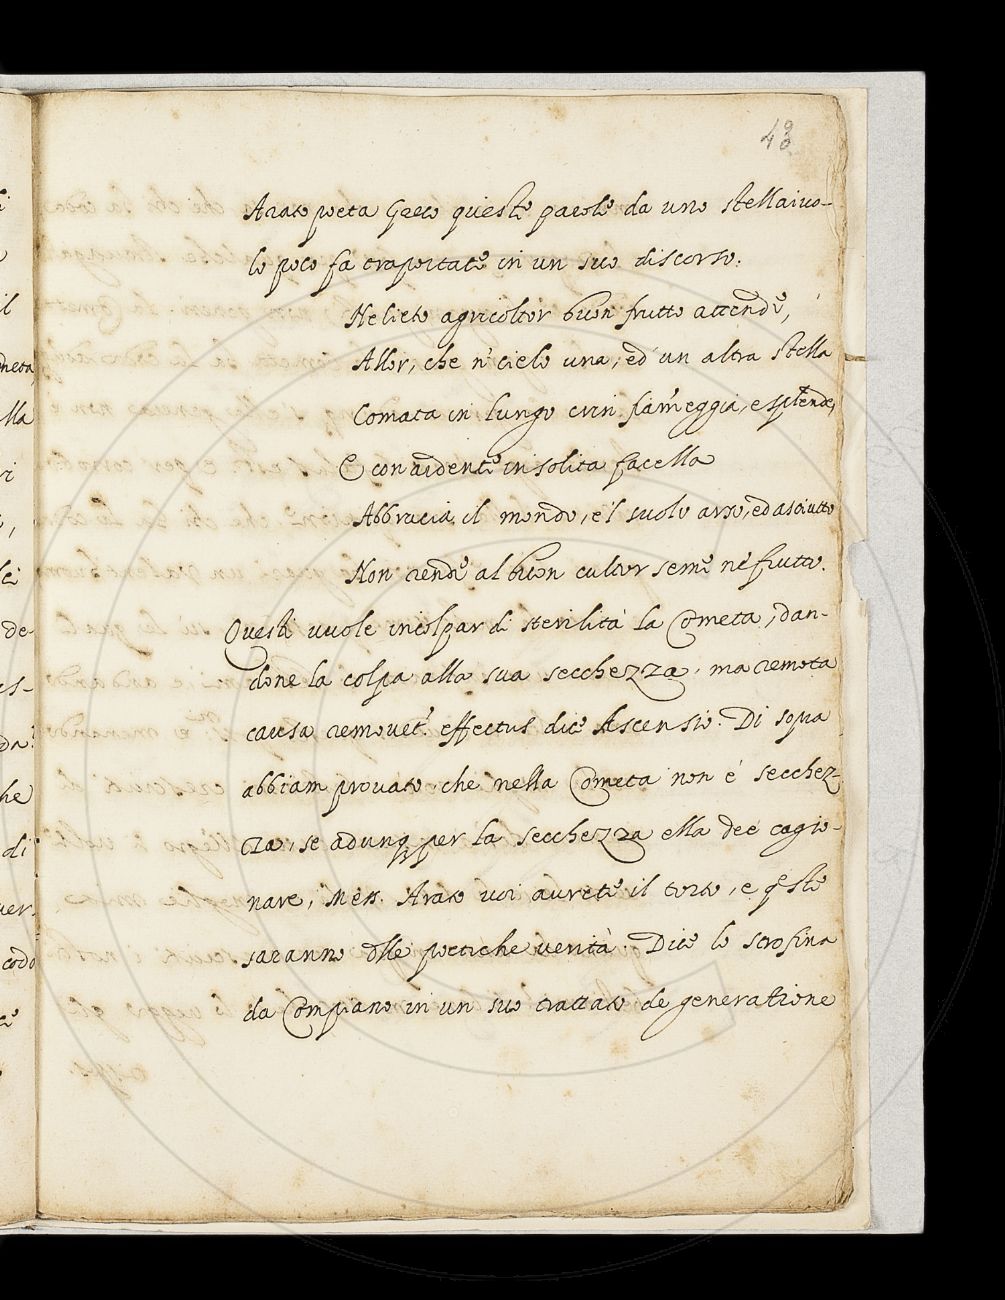 43
Arato poeta Greco queste parole da uno stellaiuo-
lo poco fà traportate in un suo discorso.
Ne lieto agricoltor buon frutto attende,
Allor, che n' cielo una, ed' un altra stella
Comata in lungo crin fiam̃eggia, e splende,
E con ardente insolita facella
Abbrucia il mondo, e'l suolo arso, ed asciutto
Non rende al buon cultor seme nè frutto.
Questi vuole incolpar di sterilità la Cometa, dan-
done la colpa alla sua secchezza, ma remota
causa removet.r effectus dice Ascensio. Di sopra
abbiam prouato che nella Cometa non é secchez-
za, se adunq per la secchezza ella dee cagio-
nare, Mess. Arato uoi aurete il torto, e q.ste
saranno dlle poetiche uerità. Dice lo scrofina
da Compiano in un suo trattato de generatione